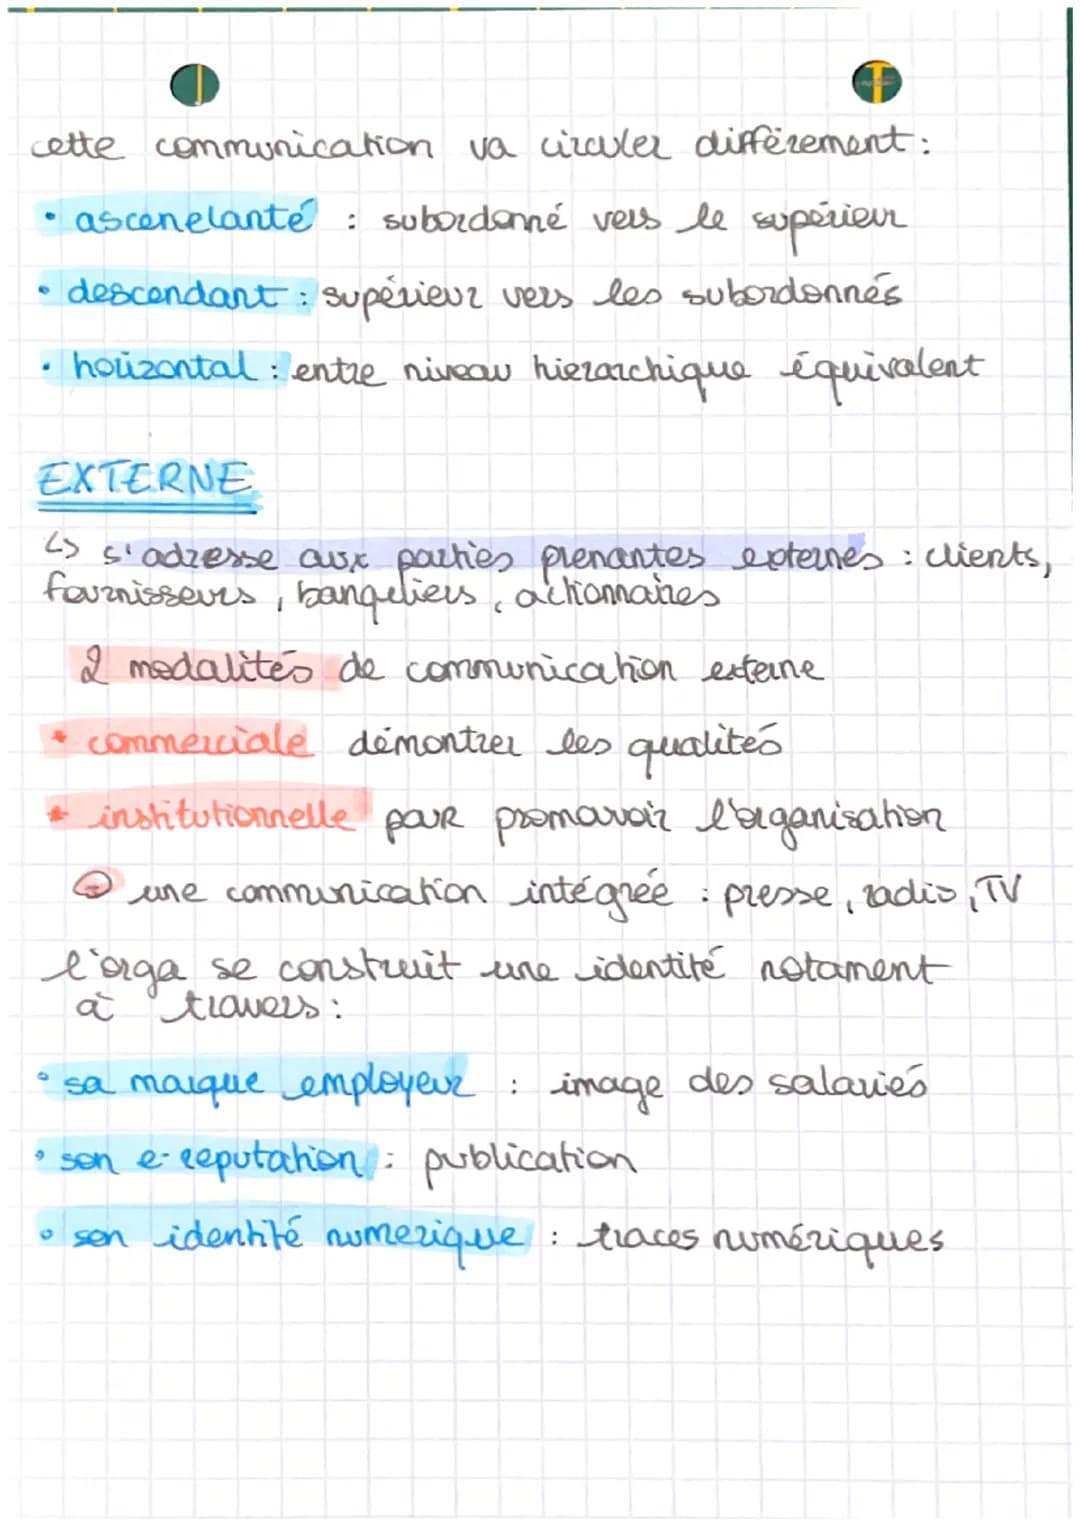 cette communication va circuler différement :
• ascenelanté : subordonné vers le supérieur
• descendant : supérieur vers les subordonnés
• horizontal : entre niveau hierarchique équivalent
EXTERNE
↳ s'adresse aux parties prenantes externes : clients,
fournisseurs, banquiers, actionnaires
2 modalités de communication externe
* commerciale démontrer les qualités
* institutionnelle pour promouvoir l'organisation
une communication intégrée : presse, radio, TV
l'orga se construit une identité notament
à travers :
• sa marque employeur : image des salariés
• son e-reputation : publication
• son identité numerique : traces numériques